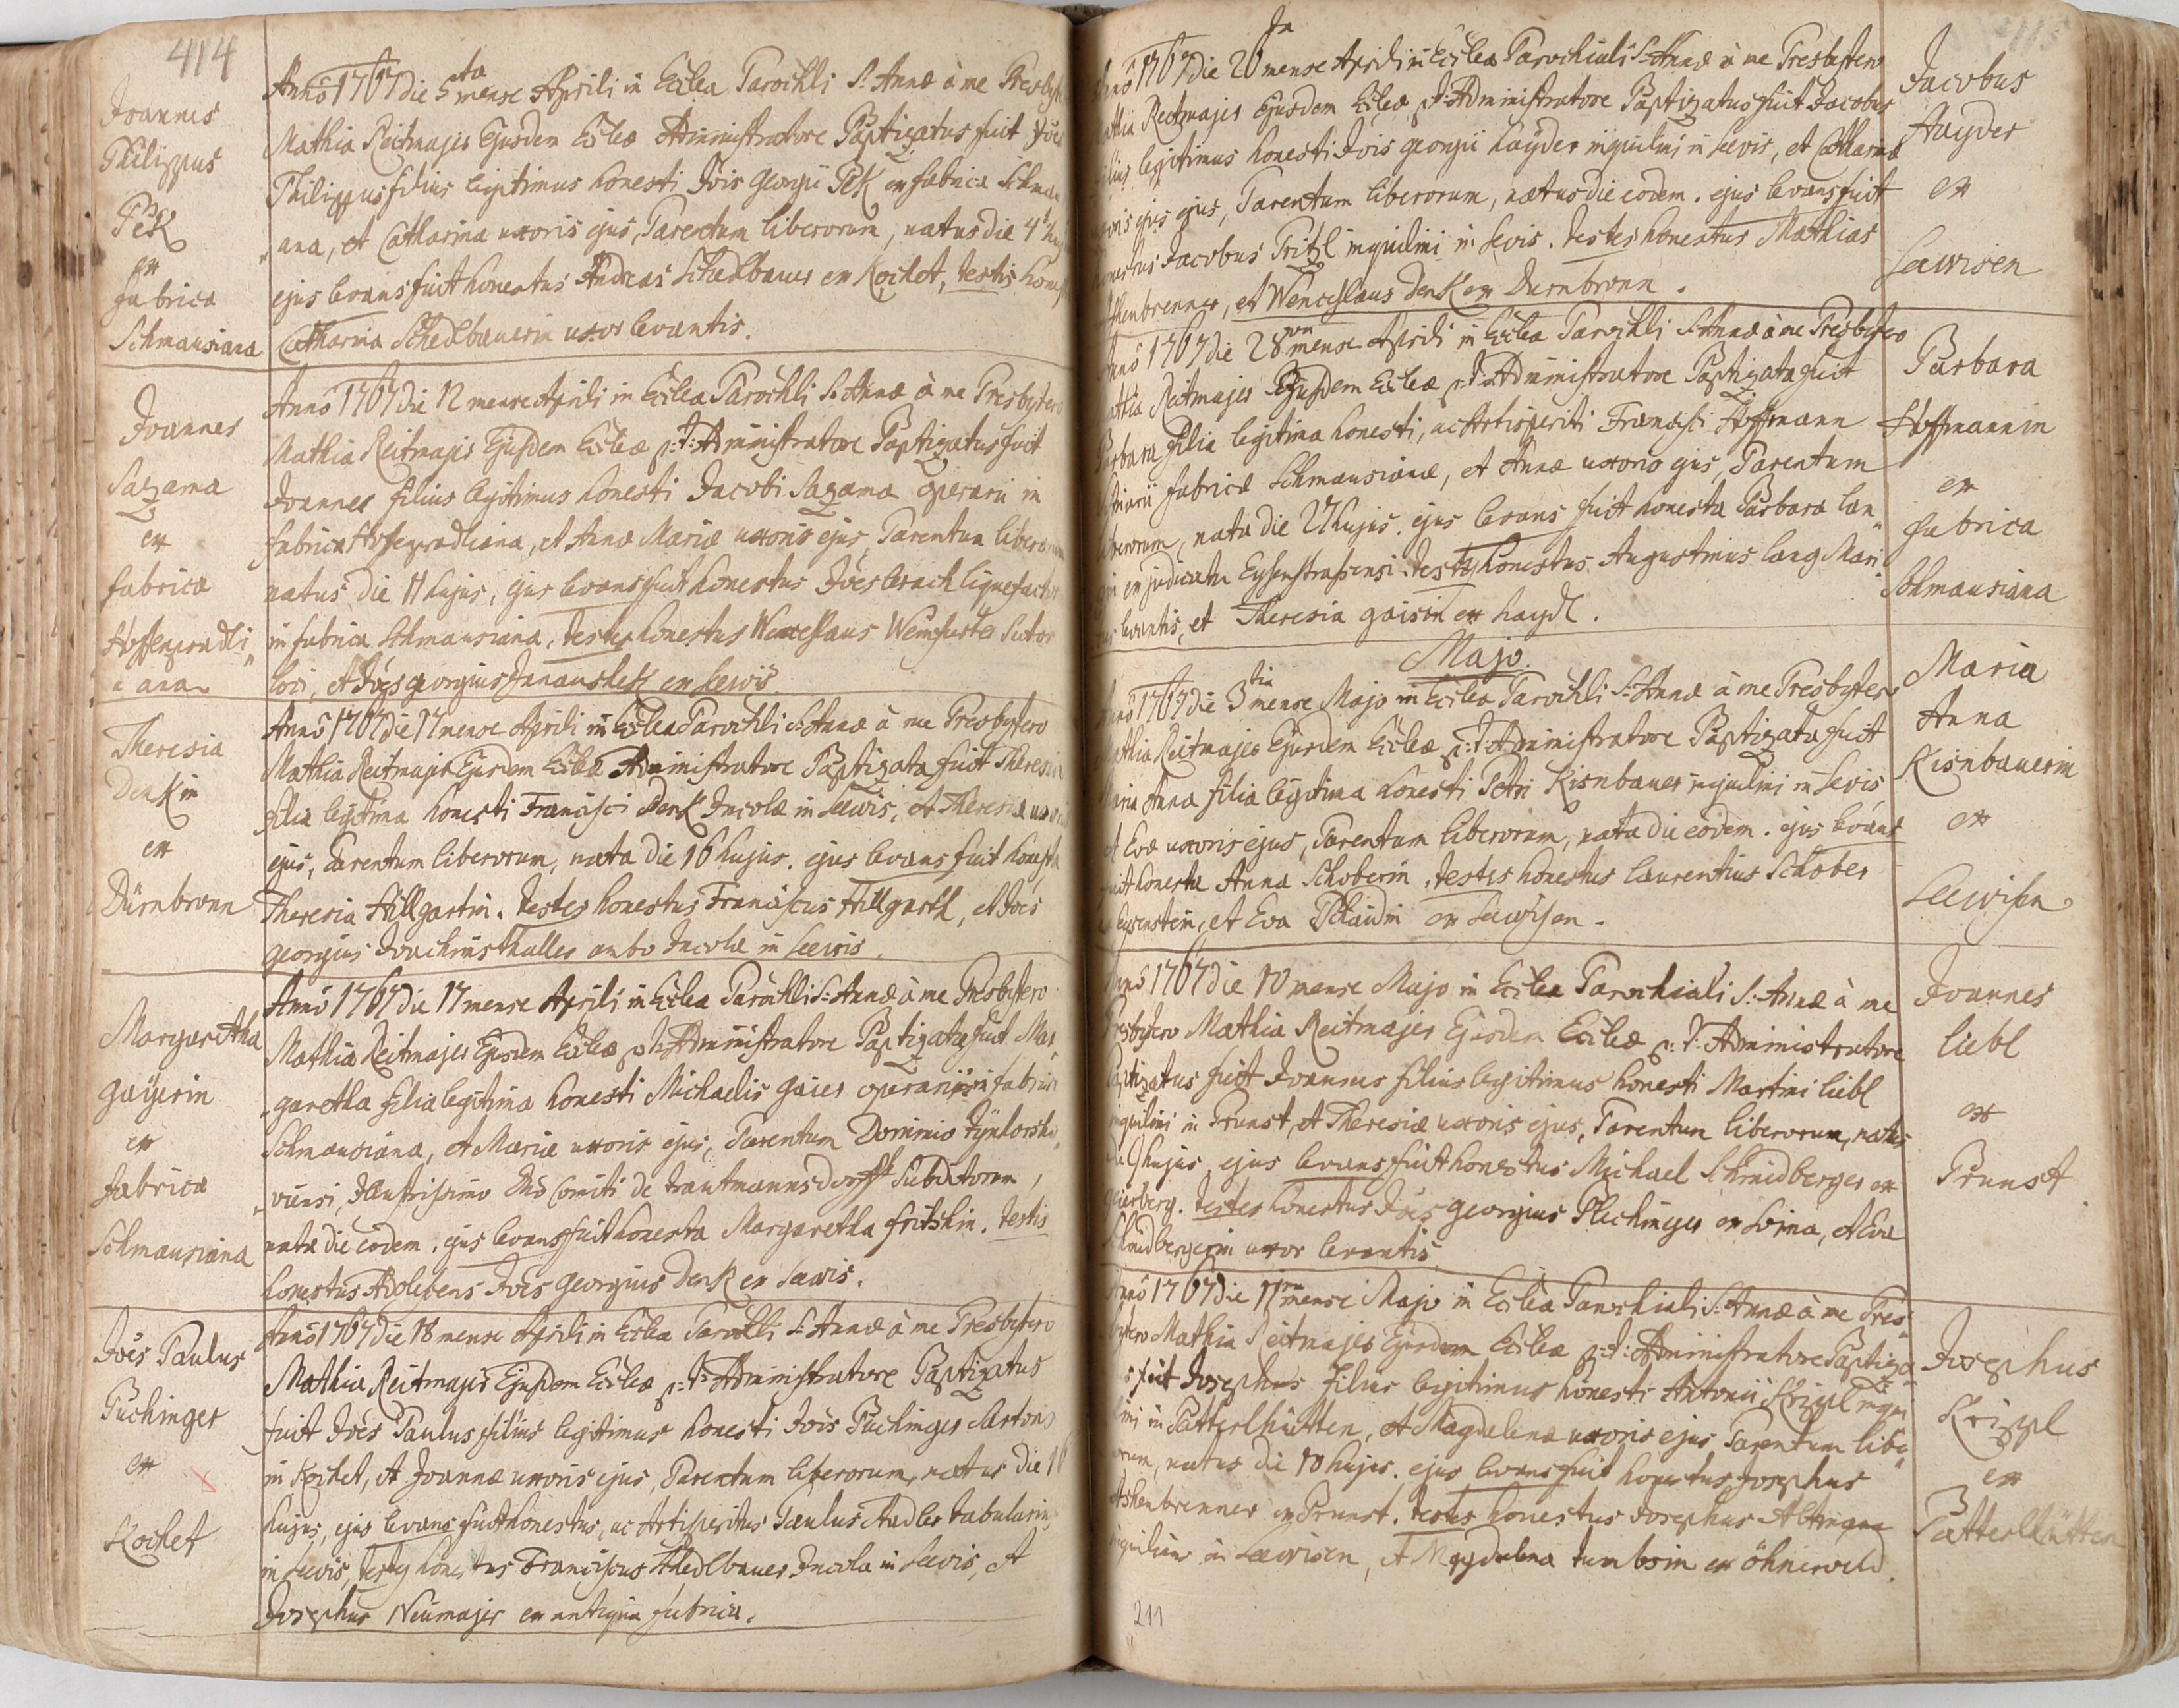 414
Joannes
Philippus
Pek
ex
fabrica
Schmausiana
Annô 1767 die 5ta mense Aprili in Eccle͞a Parochli S: Annæ à me Presbyt
Mathia Reitmajer Ejusdem Eccleæ Administratore Paptizatus fuit Joes
Philippus filius legitimus honesti Jois Georgii Pek ex fabrica Schmau
„ana, et Catharina uxoris ejus, Parentum liberorum, natus die 4 huj
ejus levans fuit honestus Andreas Schedlbauer ex Kochet, testis hones
Catharina Schedlbauerin uxor levantis.
Joannes
Sazama
ex
fabrica
Hoffengradli„
„ana
Annô 1767 die 12 mense Aprili in Ecclea Parochli S: Annæ à me Presbytero
Mathia Reitmajer Ejusdem Eccleæ p:t: Administratore Paptizatus fuit
Joannes filius legitimus honesti Jacobi Sazama operarii in
fabrica Hofegradliana, et Annæ Mariæ uxoris ejus, Parentum liberorum
natus die 11 hujus, ejus levans fuit honestus Joes Lerach liquefactor
in fabrica Schmausiana, testes honestus Wenceslaus Weinfurter Sutor
loci, et Joes georgius Janauschek ex Seewis.
Theresia
Denkin
ex
Dürnbronn
Annô 1767 die 17 mense Aprili in Ecclea Parochli S: Annæ à me Presbytero
Mathia Reitmajer Ejusdem Eccleæ Administratore Paptizata fuit Theresia
filia legitima honesti Francisci Denk Incolæ in Seewis, et Theresiæ uxoris
ejus, Parentum liberorum, nata die 16 hujus. ejus levans fuit honesta
Theresia Hillgartin. testes honestus Franciscus Hillgarth, et Joes
georgius Joachimsthaller ambo Incolæ in Seewis.
Margaretha
gaÿerin
ex
fabrica
Schmausiana
Annô 1767 die 17 mense Aprili in Ecclea Parochli S: Annæ à me Presbytero
Mathia Reitmajer Ejusdem Eccleæ p:t: Administratore Paptizata fuit Mar„
„garetha filia legitima honesti Michaelis gaier operarii in fabrica
Schmausiana, et Mariæ uxoris ejus, Parentum Dominio
„viensi, Illustrissimo Dno Comiti de trautmannsdorff Subditorum,
nata die eodem, ejus levans fuit honesta Margaretha fritshin. testis
honestus Adolescens Joes georgius Denk ex Seewis.
Joes Paulus
Puchinger
ex
Kochet
Annô 1767 die 18 mense Aprili in Ecclea Parochli S: Annæ à me Presbytero
Mathia Reitmajer Ejusdem Eccleæ p:t: Administratore Paptizatus
fuit Joes Paulus filius legitimus honesti Jois Puchinger Sartoris
in Kochet, et Joannæ uxoris ejus, Parentum liberorum, natus die 1
hujus, ejus levans fuit honestus, ac Artisperitus Paulus Andler tabularius
in Seewis, testes honestus Franciscus Incola in Seewis, et
Josephus Neumajer ex antiqua fabrica.
Annô 1767 die 20ma mense Aprili in Ecclea Parochiali S: Annæ à me Presbytero
Mathia Reitmajer Ejusdem Eccleæ p:t: Administratore Paptizatus fuit Jacobus
filius legitimus honesti Jois georgii Hayder inquilini in Seewis, et Catharinæ
uxoris ejus, Parentum liberorum, natus die eodem. ejus levans fuit
honestus Jacobus Pritzl inquilini in Sewis. testes honestus Mathias
Ashenbrenner, et Wenceslaus Denk ex Durnbronn.
Jacobus
Hayder
ex
Seewisen
Annô 1767 die 28va mense Aprili in Ecclea Parochli S: Annæ à me Presbytero
Mathia Reitmajer Ejusdem Eccleæ p:t: Administratore Paptizata fuit
Parbara filia legitima honesti, ac Artisperiti Francisci Hoffmann
fabricæ Schmausianæ, et Annæ uxoris ejus, Parentum
liberorum, nata die 27 hujus. ejus levans fuit honesta Parbara lan„
„gin ex judicatu Eysenstrassensi. testes honestus Augustinus lang Mari„
„tus levantis, et Theresia gaisin ex haydl.
Parbara
Hoffmannin
ex
fabrica
Schmausiana
Majo.
Annô 1767 die 3tia mense Majo in Ecclea Parochli S: Annæ à me Presbytero
Mathia Reitmajer Ejusdem Eccleæ p:t: Administratore Paptizata fuit
Maria Anna filia legitima honesti Petri Kisnbauer inquilini in Sewis
et Evæ uxoris ejus, Parentum liberorum, nata die eodem. ejus levans
fuit honesta Anna Schoberin, testes honestus Laurentius Schober
ex eysenstein, et Eva ex Seewisen.
Maria
Anna
Kisnbauerin
ex
Seewisen
Annô 1767 die 10 mense Majo in Ecclea Parochiali S: Annæ à me
Presbytero Mathia Reitmajer Ejusdem Eccleæ p:t: Administratore
Paptizatus fuit Joannes filius legitimus honesti Martini Liebl
inquilini in Prunst, et Theresiæ uxoris ejus, Parentum liberorum, natus
die 9 hujus, ejus levans fuit honestus Michael Schmidberger ex
. testes honestus Joes georgius Plechinger ex , et Eva
Schmidbergerin uxor levantis.
Joannes
Liebl
ex
Prunst
Annô 1767 die 11ma mense Majo in Ecclea Parochiali S: Annæ à me Pres„
„bytero Mathia Reitmajer Ejusdem Eccleæ p:t: Administratore Paptiza„
„tus fuit Josephus filius legitimus honesti Antonii Krippl inqui„
„lini in Patterlhütten, et Magdalenæ uxoris ejus, Parentum libe„
„rorum, natus die 10 hujus. ejus levans fuit honestus Josephus
Ashenbrenner ex Prunst. testes honestus Josephus Altmann
inquilinus in Seewisen, et Magdalena tumbsin ex öhnerweld.
Josephus
Krippl
ex
Patterlhütten
211